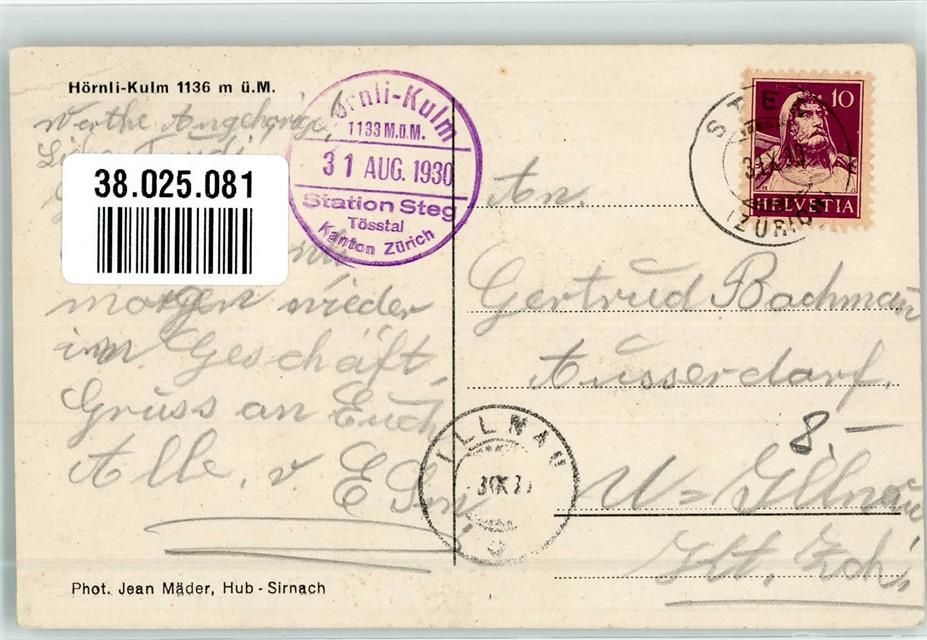 Hörnli-Kulm 1136 m ü.M.
Werthe Angehörige,
38.025.081
morgen wieder
im Geschäft,
Gruss an Euch
Alle, v
Hörnli-Kulm
1133 M.Ü.M.
31 AUG. 1930
Station Steg
Tösstal
Kanton Zürich
STEG
(ZÜRICH)
10
HELVETIA
An.
Gertrud Bachmann
Ausserdorf.
8 –
U=Illnau
Kt. Zch.
ILLNAU
Phot. Jean Mäder, Hub - Sirnach